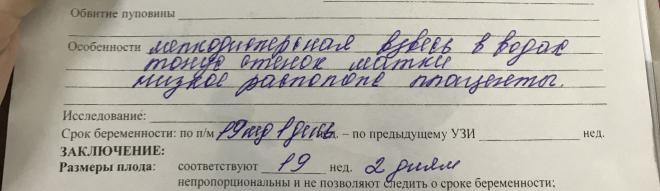 Обвитие пуповины
Особенности мелкодисперсная взвесь в водах
тонус стенок матки
низкое располож плаценты.
Исследование:
Срок беременности: по п/м 19 нед 1 день нед. – по предыдущему УЗИ нед.
ЗАКЛЮЧЕНИЕ:
Размеры плода: соответствуют 19 нед. 2 дням
непропорциональны и не позволяют следить о сроке беременности;